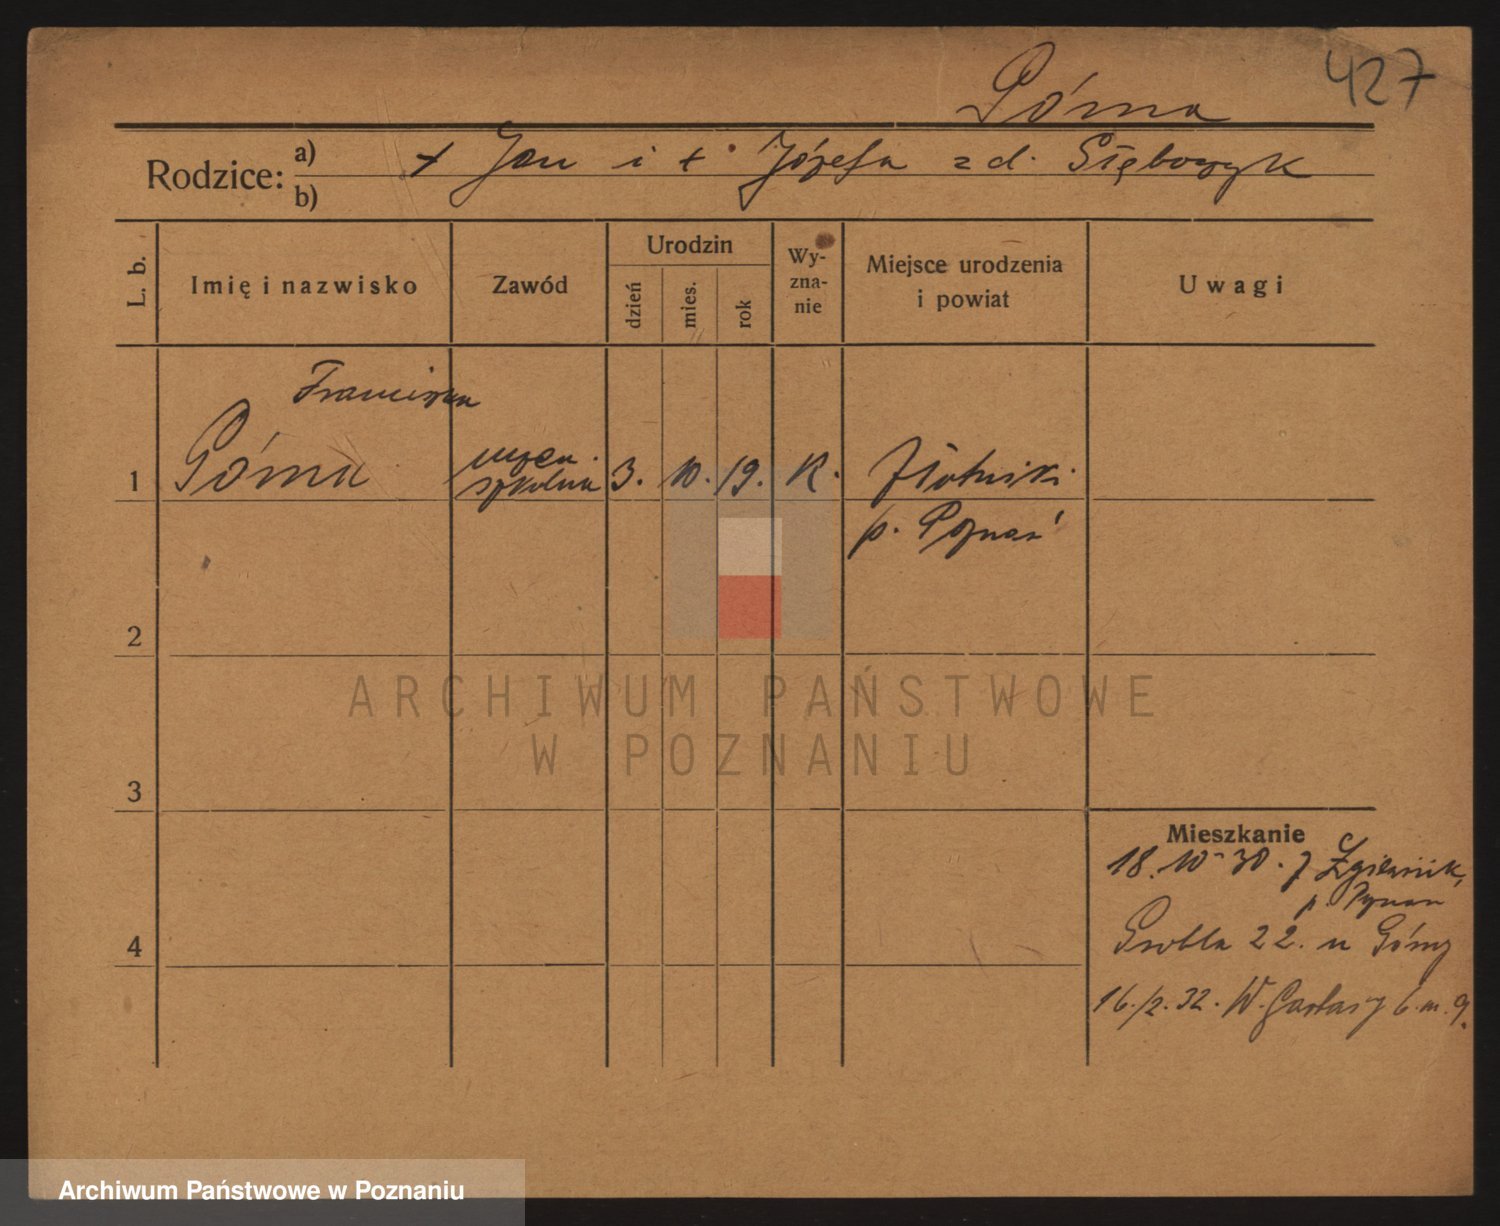 427
Górna
Rodzice: a) + Jan i + Józefa z d.
b)
L. b.
Imię i nazwisko
Zawód
Urodzin
dzień
mies.
rok
Wy-
zna-
nie
Miejsce urodzenia
i powiat
Uwagi
Franciszka
1 Górna
uczen.
szkolna
3. 10. 19. K. Złotniki
p. Poznań
2
3
4
Mieszkanie
18.10-30. z
p. Poznań
Grobla 22. u Górny
16./2.32. W. Garbary 6. m. 9.
ARCHIWUM PAŃSTWOWE
W POZNANIU
Archiwum Państwowe w Poznaniu